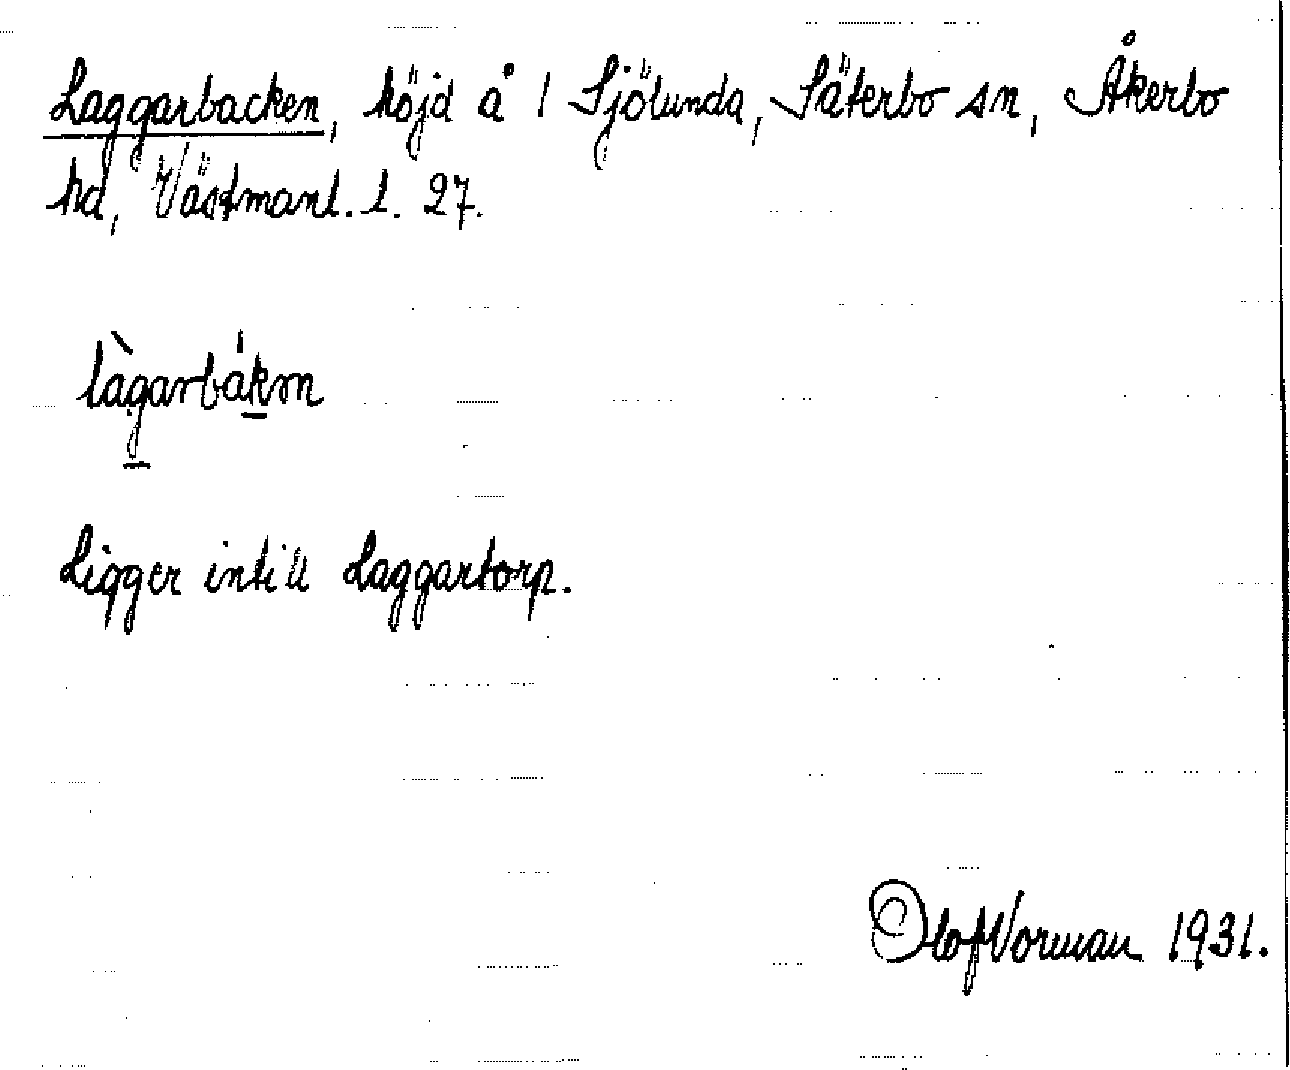 Laggarbacken, höjd å 1 Sjölunda, Säterbo sn, Åkerbo
hd, Västmanl. l. 27.
làg̱arbáḵm
Ligger intill Laggartorp.
Olof Norman 1931.